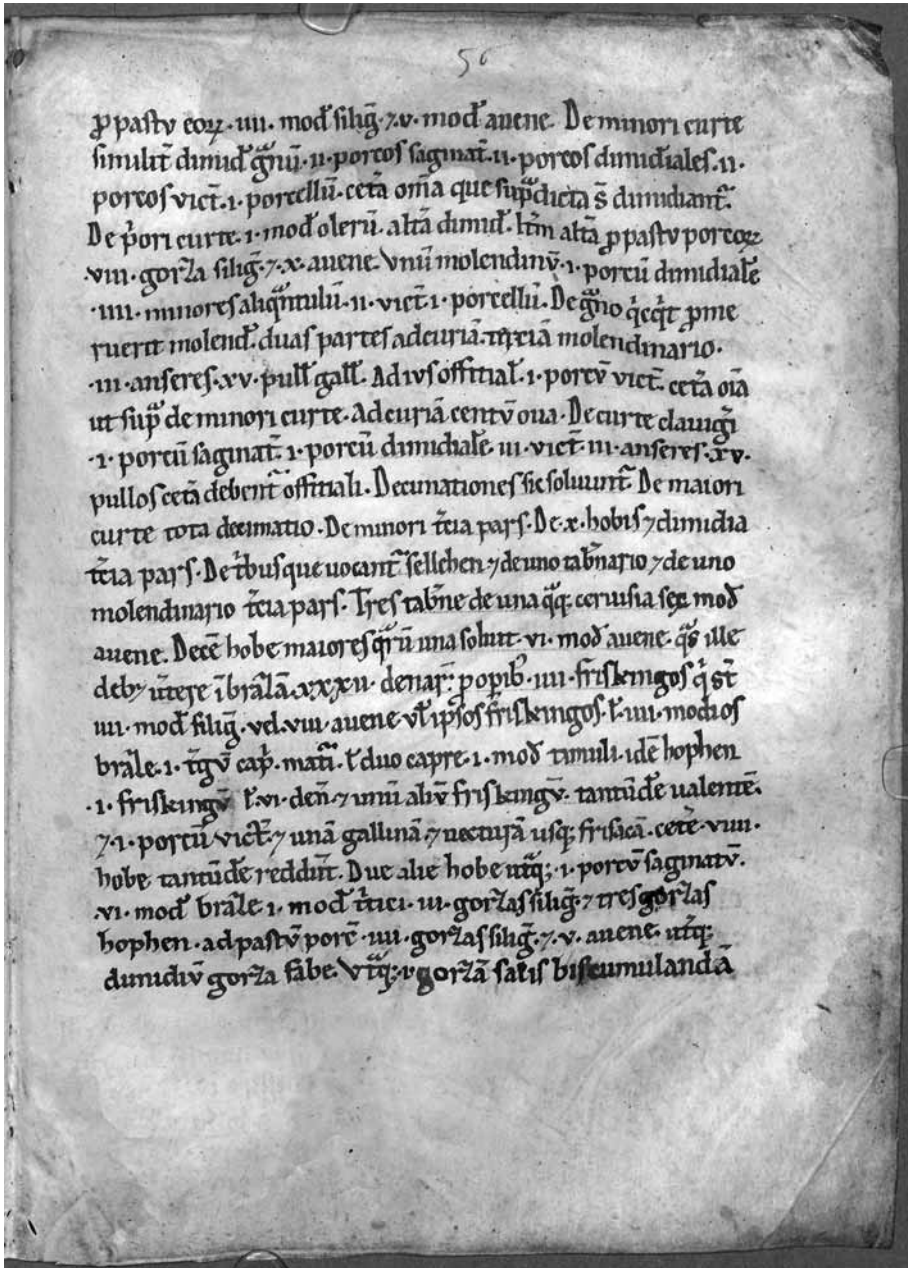 56
ꝑ pastv eoꝝ · IIII · mod̄ silig̅ · ⁊ · v · mod̄ avene · De minori curte
similit̄ dimid̄ gͣnū · II · porcos saginat̄ · II · porcos dimidiales · II ·
porcos vict̄ · I · porcellū · cet̄a om̅a que sup̄dicta s̄ dimidiant̄ ·
De p̄ori curte · I · mod̄ olerū · alt̄a dimid̄ · alt̄a ꝑ pastv porcoꝝ
· VIII · gorza silig̅ · ⁊ · x · avene · Vnū molendinv̄ · I · porcū dimidiale̅
· IIII · minores aliqͣntulū · II · vict̄ · I · porcellū · De gͣno qͥcqͥt ꝓme
ruerit molend̄ · duas partes ad curiā · terciā molendinario ·
· III · anseres · xv · pull̄ gall̄ · Ad ivs offitial̄ · I · porcv̄ vict̄ · cet̄a oīa
ut supͣ de minori curte · Ad curiā centv̄ oua · De curte clauigͥ
· I · porcū saginat̄ · I · porcū dimidiale̅ · III · vict̄ · III · anseres · xv ·
pullos cet̄a debent̄ offitiali · Decimationes sic soluunt̄ · De maiori
curte tota decimatio · De minori t̄cia pars · De · x · hobis ⁊ dimidia
t̄cia pars · De tͥbus que uocant̄ sellehen ⁊ de uno tab̄nario ⁊ de uno
molendinario t̄cia pars · Tres tab̄ne de una qͣqꝫ ceruisia sex mod̄
avene · Decē hobe maiores qͣrū una soluit · VI · mod̄ avene · qͣs ille
deb& ūtere ī bͣzlā · xxxII · denar̄ · ꝑ oꝑib̄ · IIII · friskingos qͥ st̄
IIII · mod̄ silig̅ · vl̄ · VIII · avene vl̄ ipsos friskingos · l̄ · IIII · modios
bͣzle · I · capͥ · l̄ duo capre · I · mod̄ timuli · idē hophen
· I · friskingv̄ l̄ · VI · den̄ · ⁊ unū aliv̄ friskingv̄ · tantūdē ualentē ·
⁊ · I · porcū vict̄ · ⁊ unā gallinā · ⁊ vecturā usqꝫ frisacā · cet̄e · VIIII ·
hobe tantūdē reddūt · Dve alie hobe utͣqꝫ · I · porcv̄ saginatv̄ ·
· VI · mod̄ bͣzle · I · mod̄ tͥtici · III · gorzas silig̅ · ⁊ tres gorzas
hophen · ad pastv̄ porc̄ · IIII · gorzas silig̅ · ⁊ · v · avene · utͣqꝫ
dimidiv̄ gorza fabe · Vtͣqꝫ · I · gorzā salis bis cumulandā